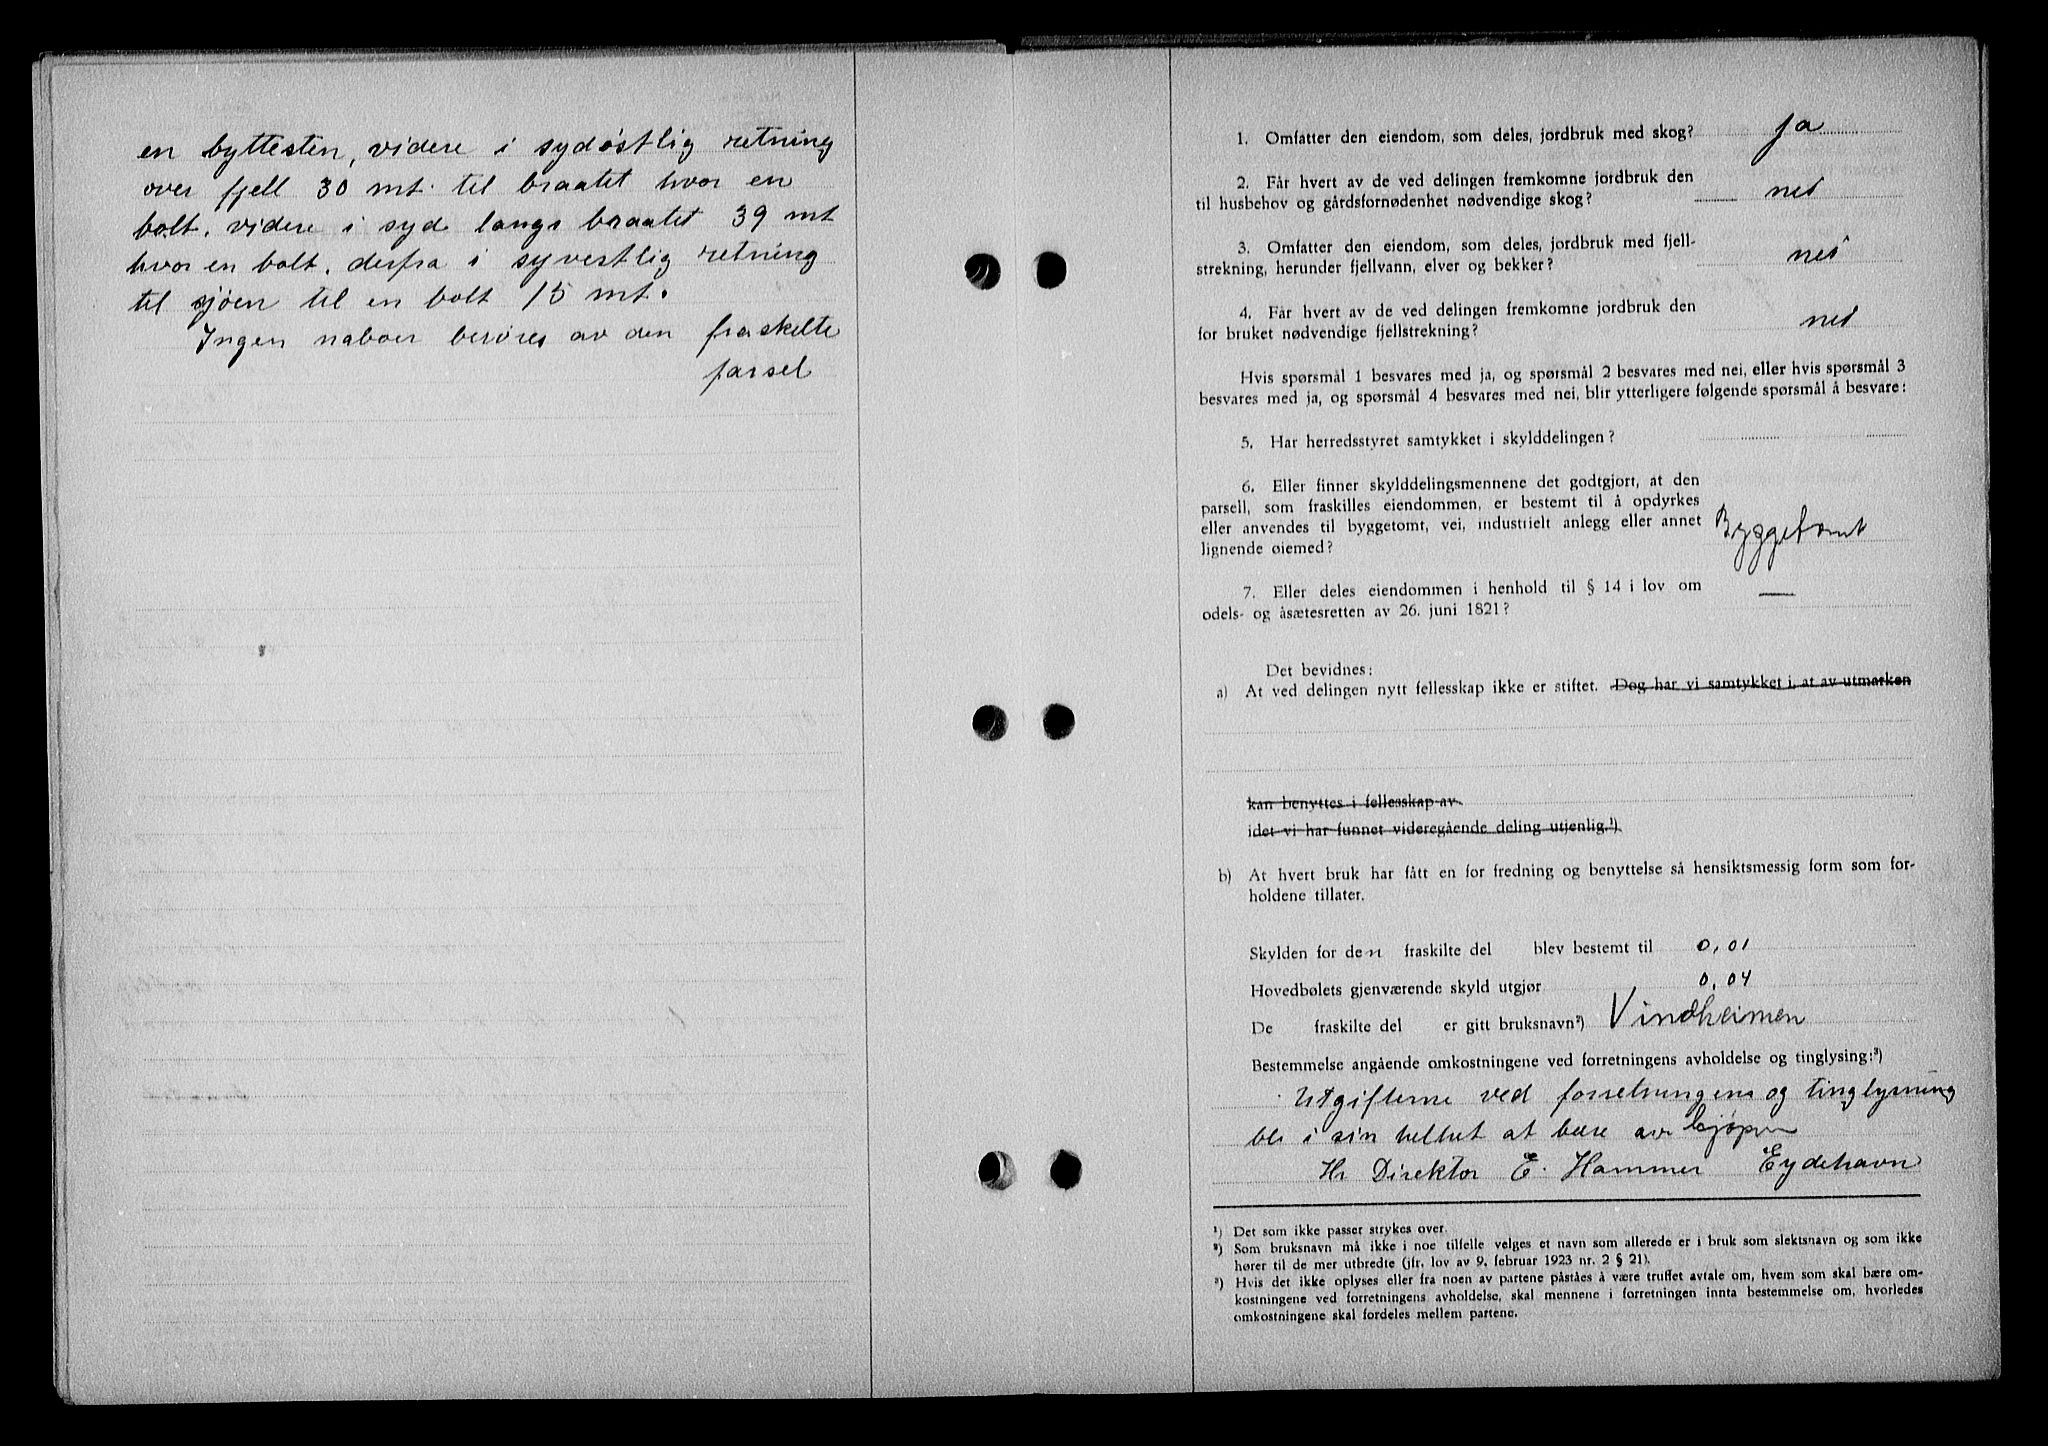 en byttesten, videre i sydøstlig retning
over fjell 30 mt. til braatet hvor en
bolt, videre i syd langs braatet 39 mt
hvor en bolt, derfra i syvestlig retning
til sjöen til en bolt 15 mt.
Ingen naboer beröres av den fraskelte
parsel
1. Omfatter den eiendom, som deles, jordbruk med skog? ja
2. Får hvert av de ved delingen fremkomne jordbruk den
til husbehov og gårdsfornødenhet nødvendige skog? nei
3. Omfatter den eiendom, som deles, jordbruk med fjell-
strekning, herunder fjellvann, elver og bekker? nei
4. Får hvert av de ved delingen fremkomne jordbruk den
for bruket nødvendige fjellstrekning? nei
Hvis spørsmål 1 besvares med ja, og spørsmål 2 besvares med nei, eller hvis spørsmål 3
besvares med ja, og spørsmål 4 besvares med nei, blir ytterligere følgende spørsmål å besvare:
5. Har herredsstyret samtykket i skylddelingen?
6. Eller finner skylddelingsmennene det godtgjort, at den
parsell, som fraskilles eiendommen, er bestemt til å opdyrkes
eller anvendes til byggetomt, vei, industrielt anlegg eller annet
lignende øiemed? Byggetomt
7. Eller deles eiendommen i henhold til § 14 i lov om —
odels- og åsætesretten av 26. juni 1821?
Det bevidnes:
a) At ved delingen nytt fellesskap ikke er stiftet. Dog har vi samtykket i, at av utmarken
kan benyttes i fellesskap av
idet vi har funnet videregående deling utjenlig.¹)
b) At hvert bruk har fått en for fredning og benyttelse så hensiktsmessig form som for-
holdene tillater.
Skylden for den fraskilte del blev bestemt til 0,01
Hovedbølets gjenværende skyld utgjør 0,04
De fraskilte del er gitt bruksnavn²) Vindheimen
Bestemmelse angående omkostningene ved forretningens avholdelse og tinglysing:³)
Utgifterne ved forretningens og tinglysning
ble i sin helhet at bære av kjøperen
Hr Direktor E. Hammer Eydehavn
¹) Det som ikke passer strykes over.
²) Som bruksnavn må ikke i noe tilfelle velges et navn som allerede er i bruk som slektsnavn og som ikke
hører til de mer utbredte (jfr. lov av 9. februar 1923 nr. 2 § 21).
³) Hvis det ikke oplyses eller fra noen av partene påståes å være truffet avtale om, hvem som skal bære om-
kostningene ved forretningens avholdelse, skal mennene i forretningen innta bestemmelse om, hvorledes
omkostningene skal fordeles mellem partene.